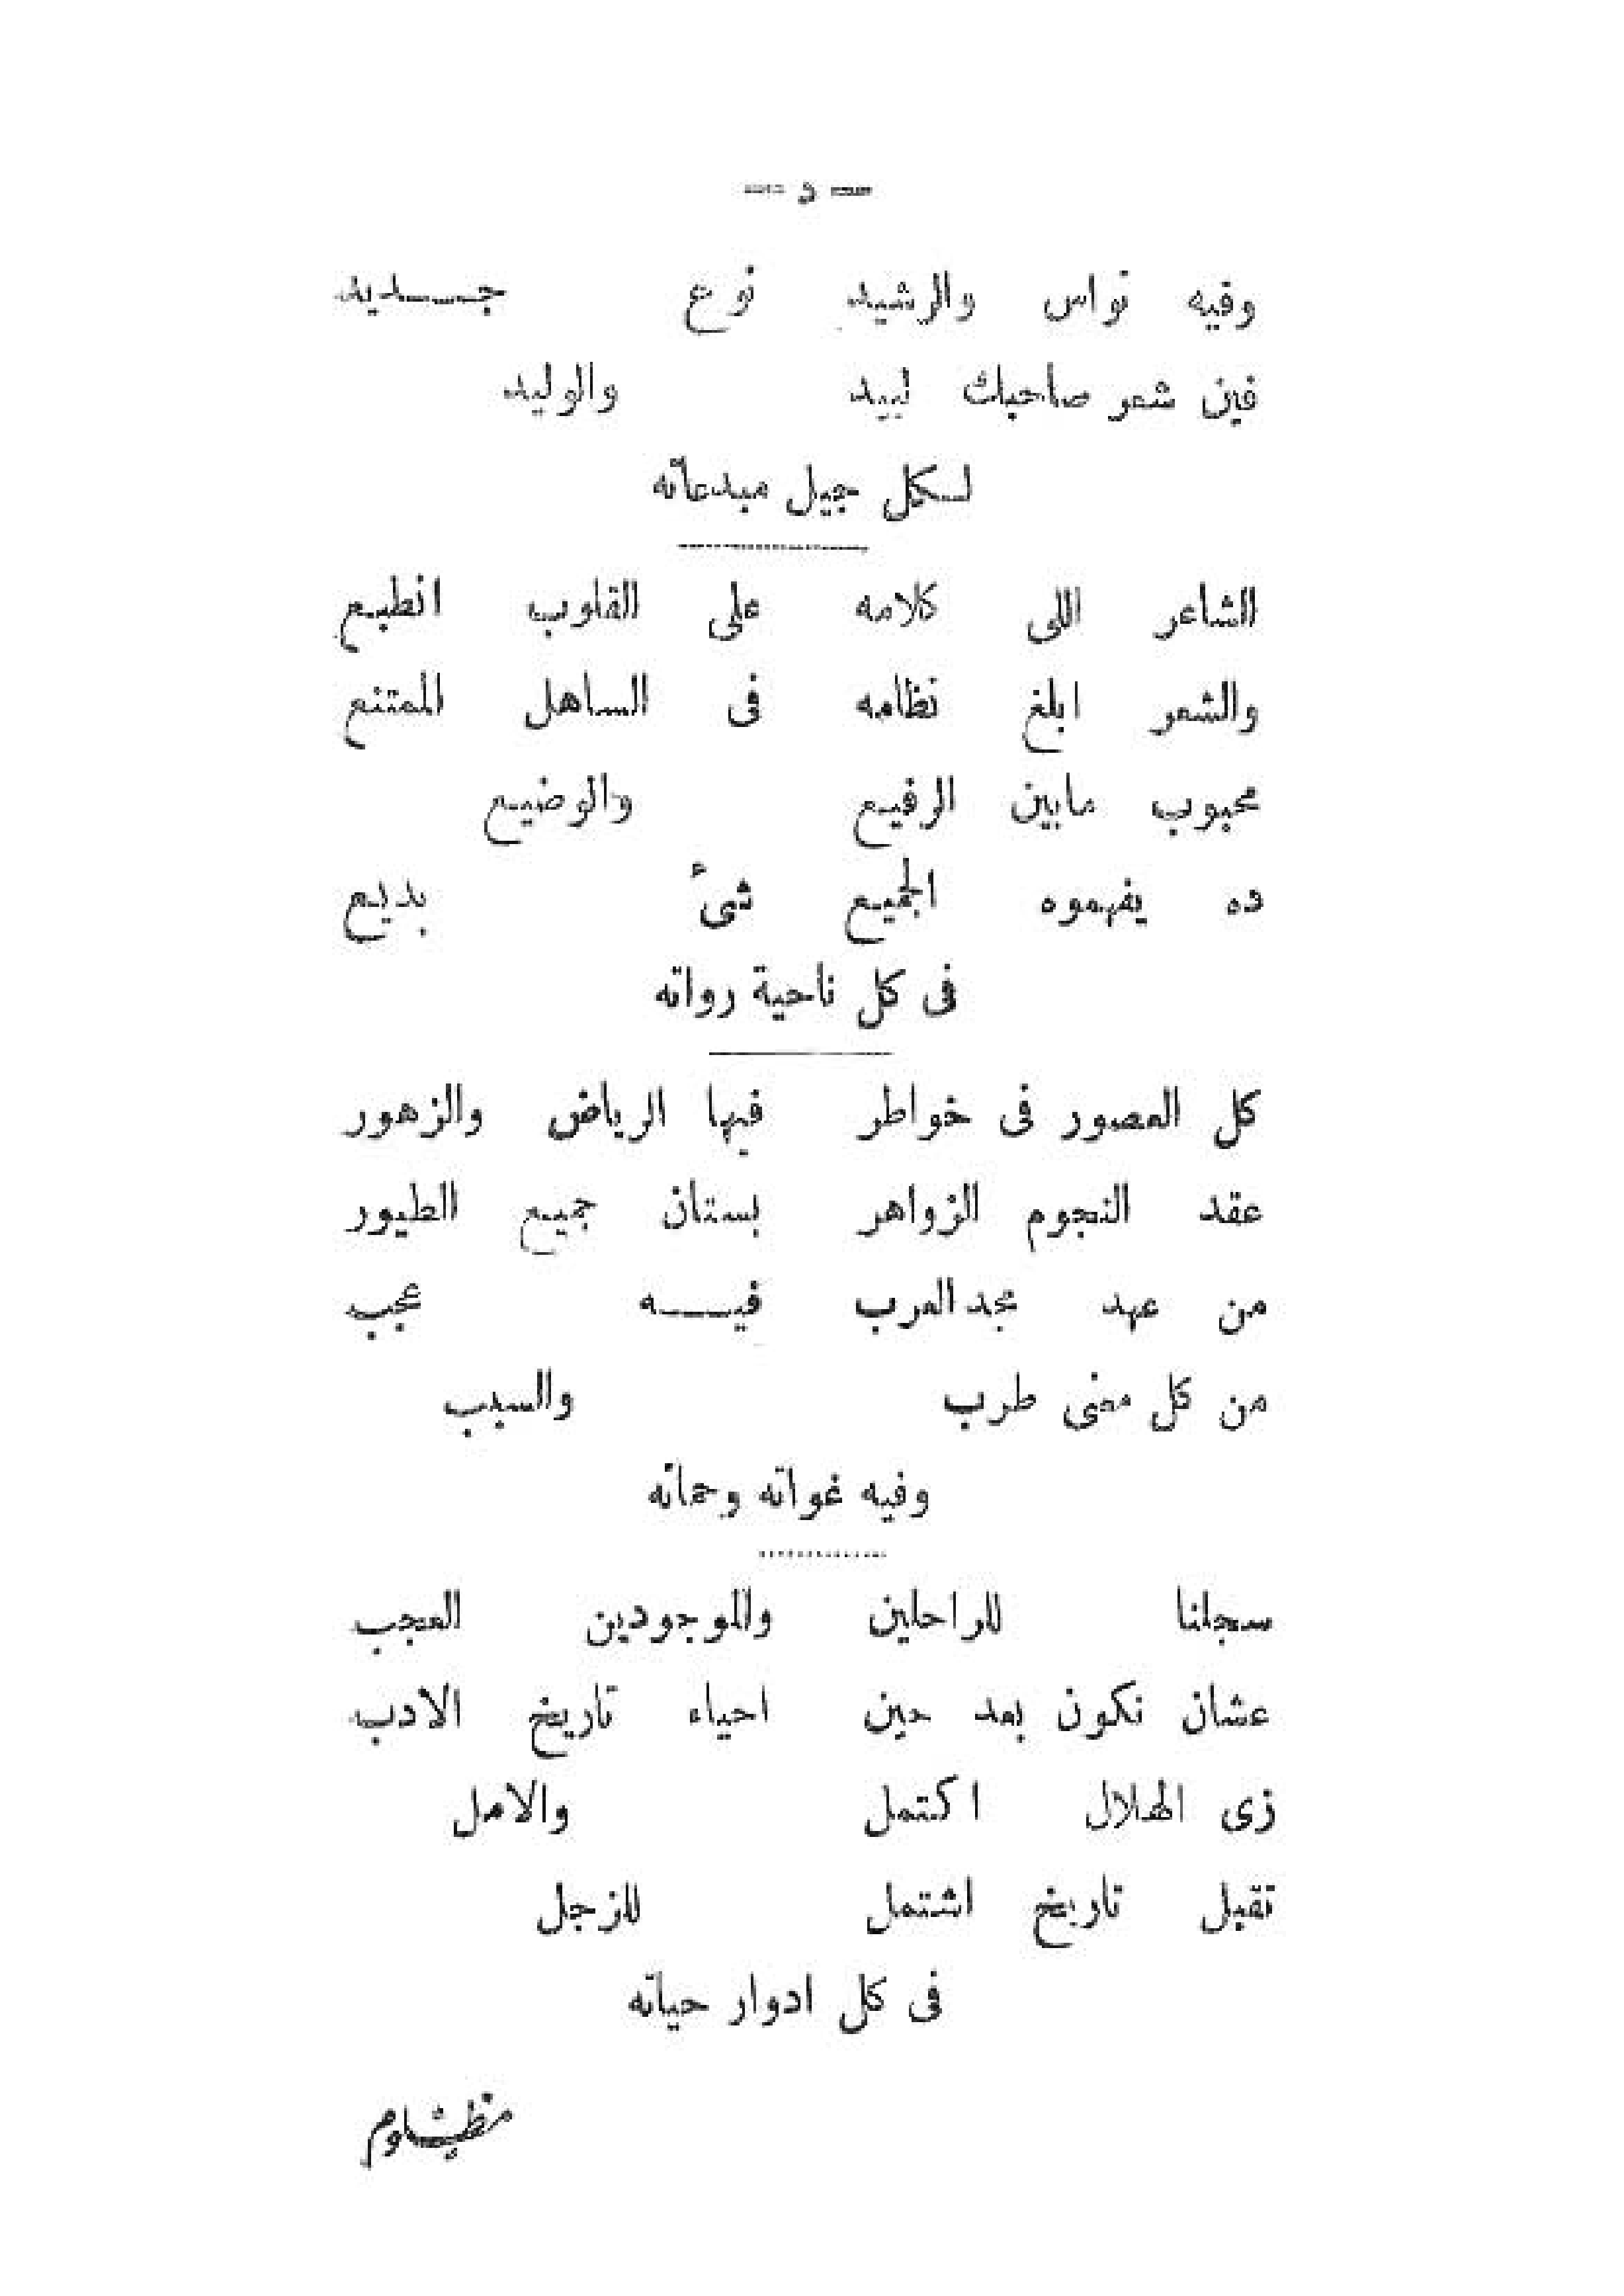 — و —
وفيه نواس والرشيد نوع جـــديد
فين شعر صاحبك لبيد والوليد
لـكل جيل مبدعاته
الشاعر اللى كلامه على القلوب انطبع
والشعر ابلغ نظامه فى الساهل الممتنع
محبوب مابين الرفيع والوضيع
ده يفهموه الجميع شىء بديع
فى كل ناحية رواته
كل العصور فى خواطر فيها الرياض والزهور
عقد النجوم الزواهر بستان جميع الطيور
من عهد مجد العرب فيـــه عجب
من كل معنى طرب والسبب
وفيه غواته وحماته
سجلنا للراحلين والموجودين العجب
عشان نكون بعد حين احياء تاريخ الادب
زى الهلال اكتمل والامل
تقبل تاريخ اشتمل للزجل
فى كل ادوار حياته